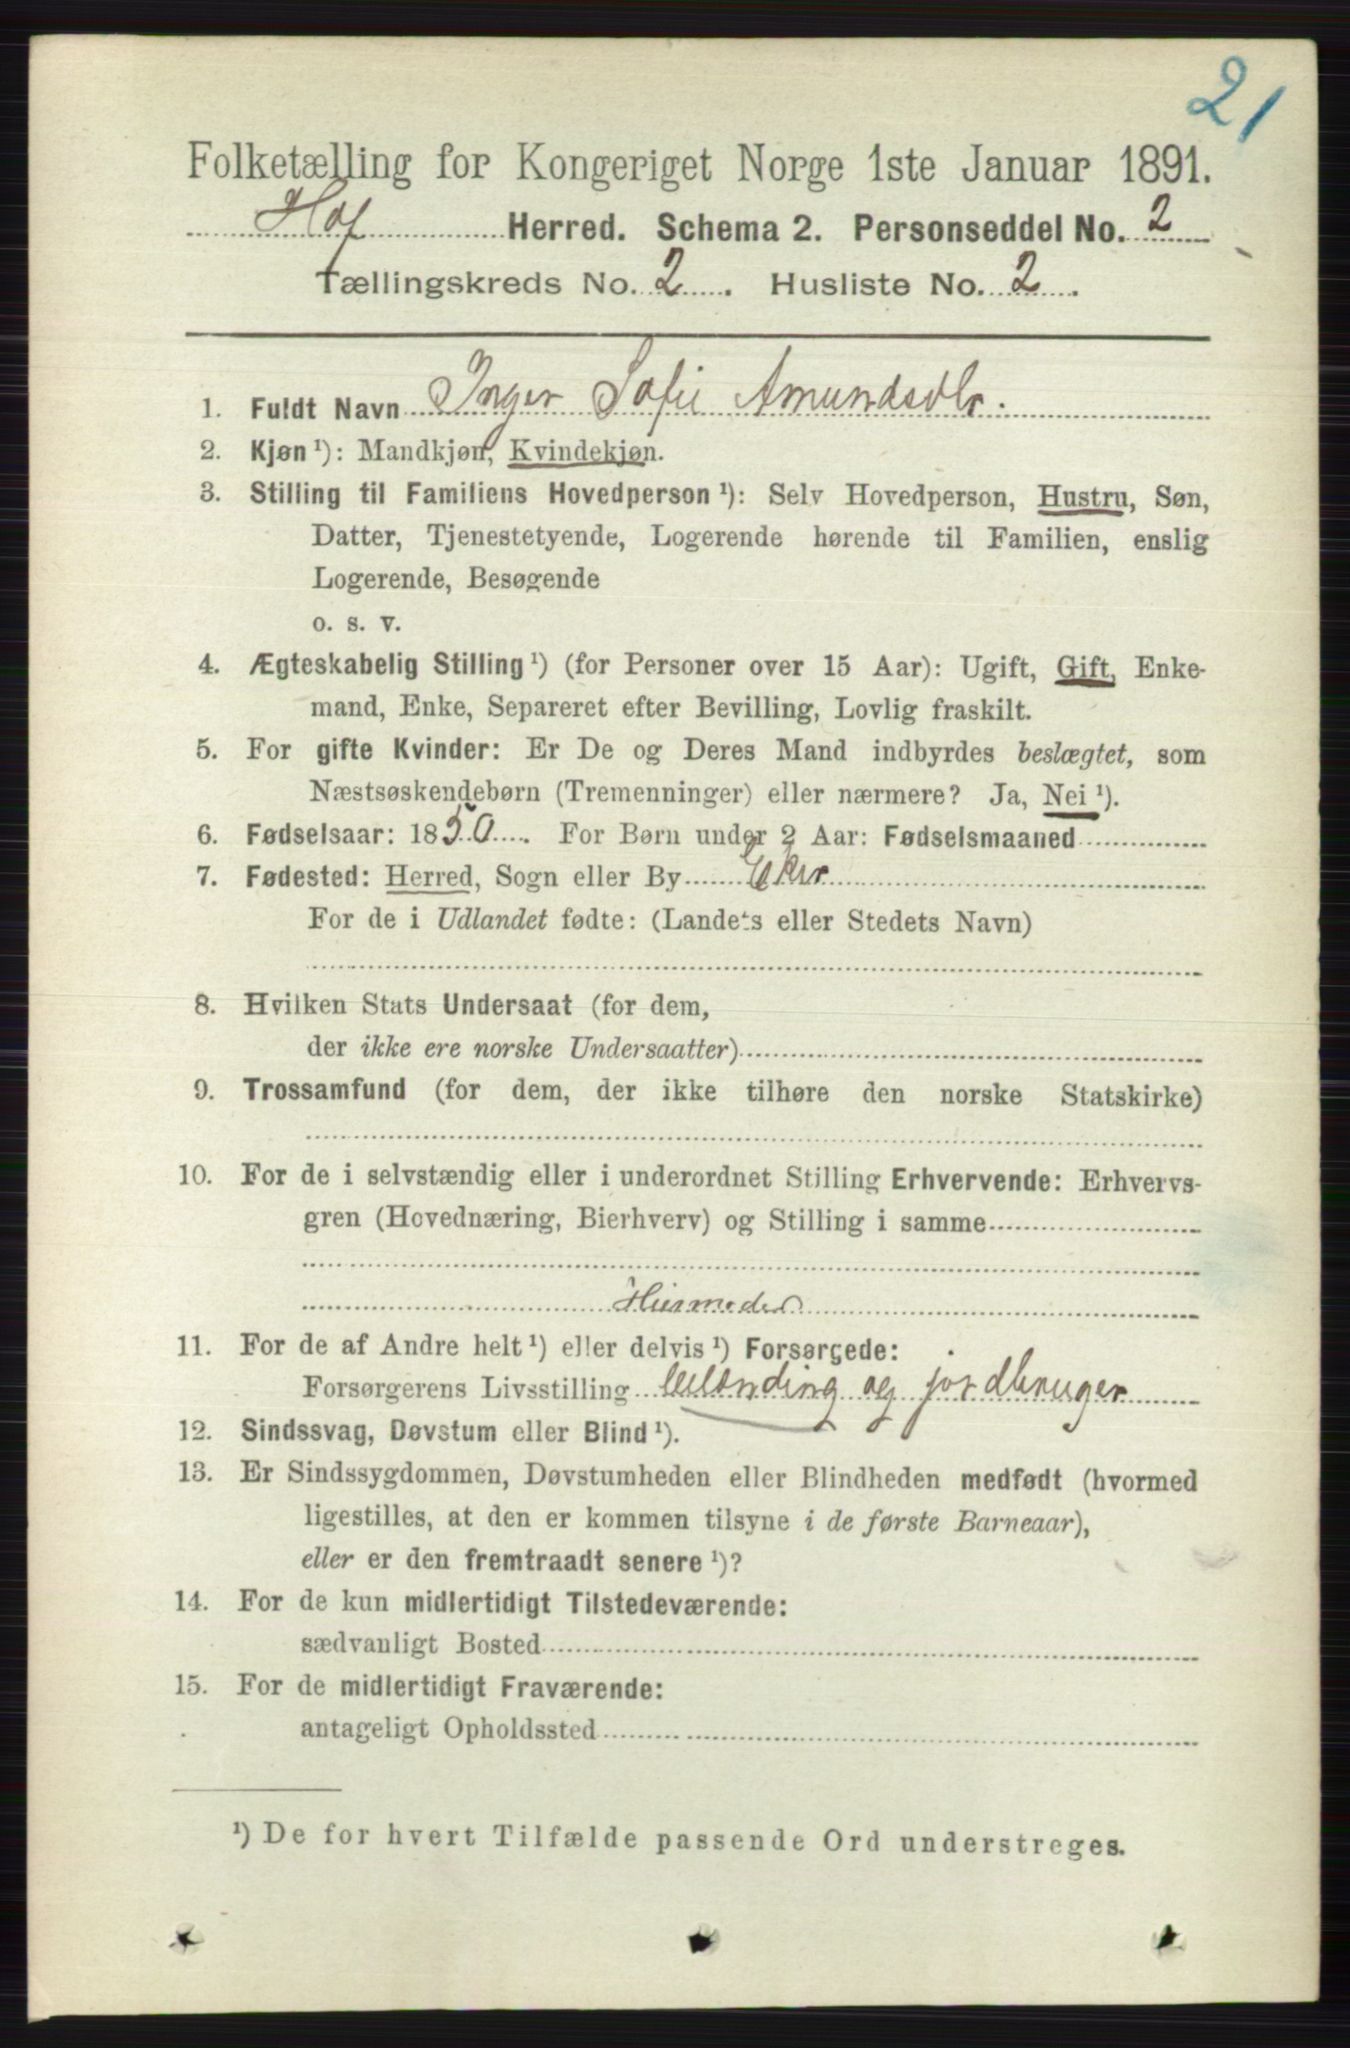 21
Folketælling for Kongeriget Norge 1ste Januar 1891.
Hof Herred. Schema 2. Personseddel No. 2
Tællingskreds No. 2. Husliste No. 2.
1. Fuldt Navn Inger Sofie Amundsdtr.
2. Kjøn ¹): Mandkjøn, Kvindekjøn.
3. Stilling til Familiens Hovedperson ¹): Selv Hovedperson, Hustru, Søn,
Datter, Tjenestetyende, Logerende hørende til Familien, enslig
Logerende, Besøgende
o. s. v.
4. Ægteskabelig Stilling ¹) (for Personer over 15 Aar): Ugift, Gift, Enke-
mand, Enke, Separeret efter Bevilling, Lovlig fraskilt.
5. For gifte Kvinder: Er De og Deres Mand indbyrdes beslægtet, som
Næstsøskendebørn (Tremenninger) eller nærmere? Ja, Nei ¹).
6. Fødselsaar: 1850. For Børn under 2 Aar: Fødselsmaaned
7. Fødested: Herred, Sogn eller By Eker
For de i Udlandet fødte: (Landets eller Stedets Navn)
8. Hvilken Stats Undersaat (for dem,
der ikke ere norske Undersaatter)
9. Trossamfund (for dem, der ikke tilhøre den norske Statskirke)
10. For de i selvstændig eller i underordnet Stilling Erhvervende: Erhvervs-
gren (Hovednæring, Bierhverv) og Stilling i samme
Husmoder
11. For de af Andre helt ¹) eller delvis ¹) Forsørgede:
Forsørgerens Livsstilling leilænding og jordbruger
12. Sindssvag, Døvstum eller Blind ¹).
13. Er Sindssygdommen, Døvstumheden eller Blindheden medfødt (hvormed
ligestilles, at den er kommen tilsyne i de første Barneaar),
eller er den fremtraadt senere ¹)?
14. For de kun midlertidigt Tilstedeværende:
sædvanligt Bosted
15. For de midlertidigt Fraværende:
antageligt Opholdssted
¹) De for hvert Tilfælde passende Ord understreges.